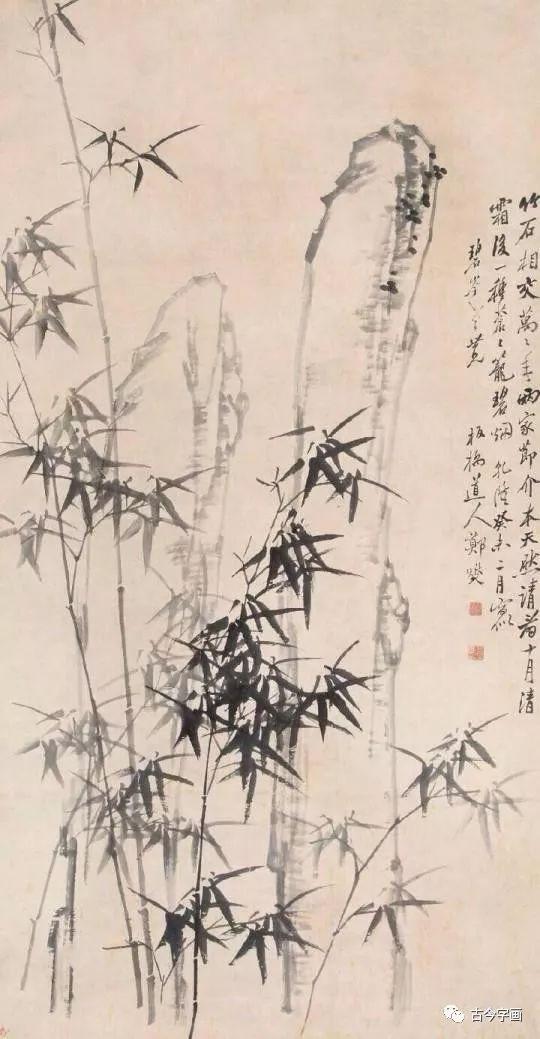 竹石相交萬々年兩家節介本天然請看十月清
霜後一種蒼々籠碧烟乾隆癸未二月寫似
碧岑
板橋道人鄭燮
古今字画